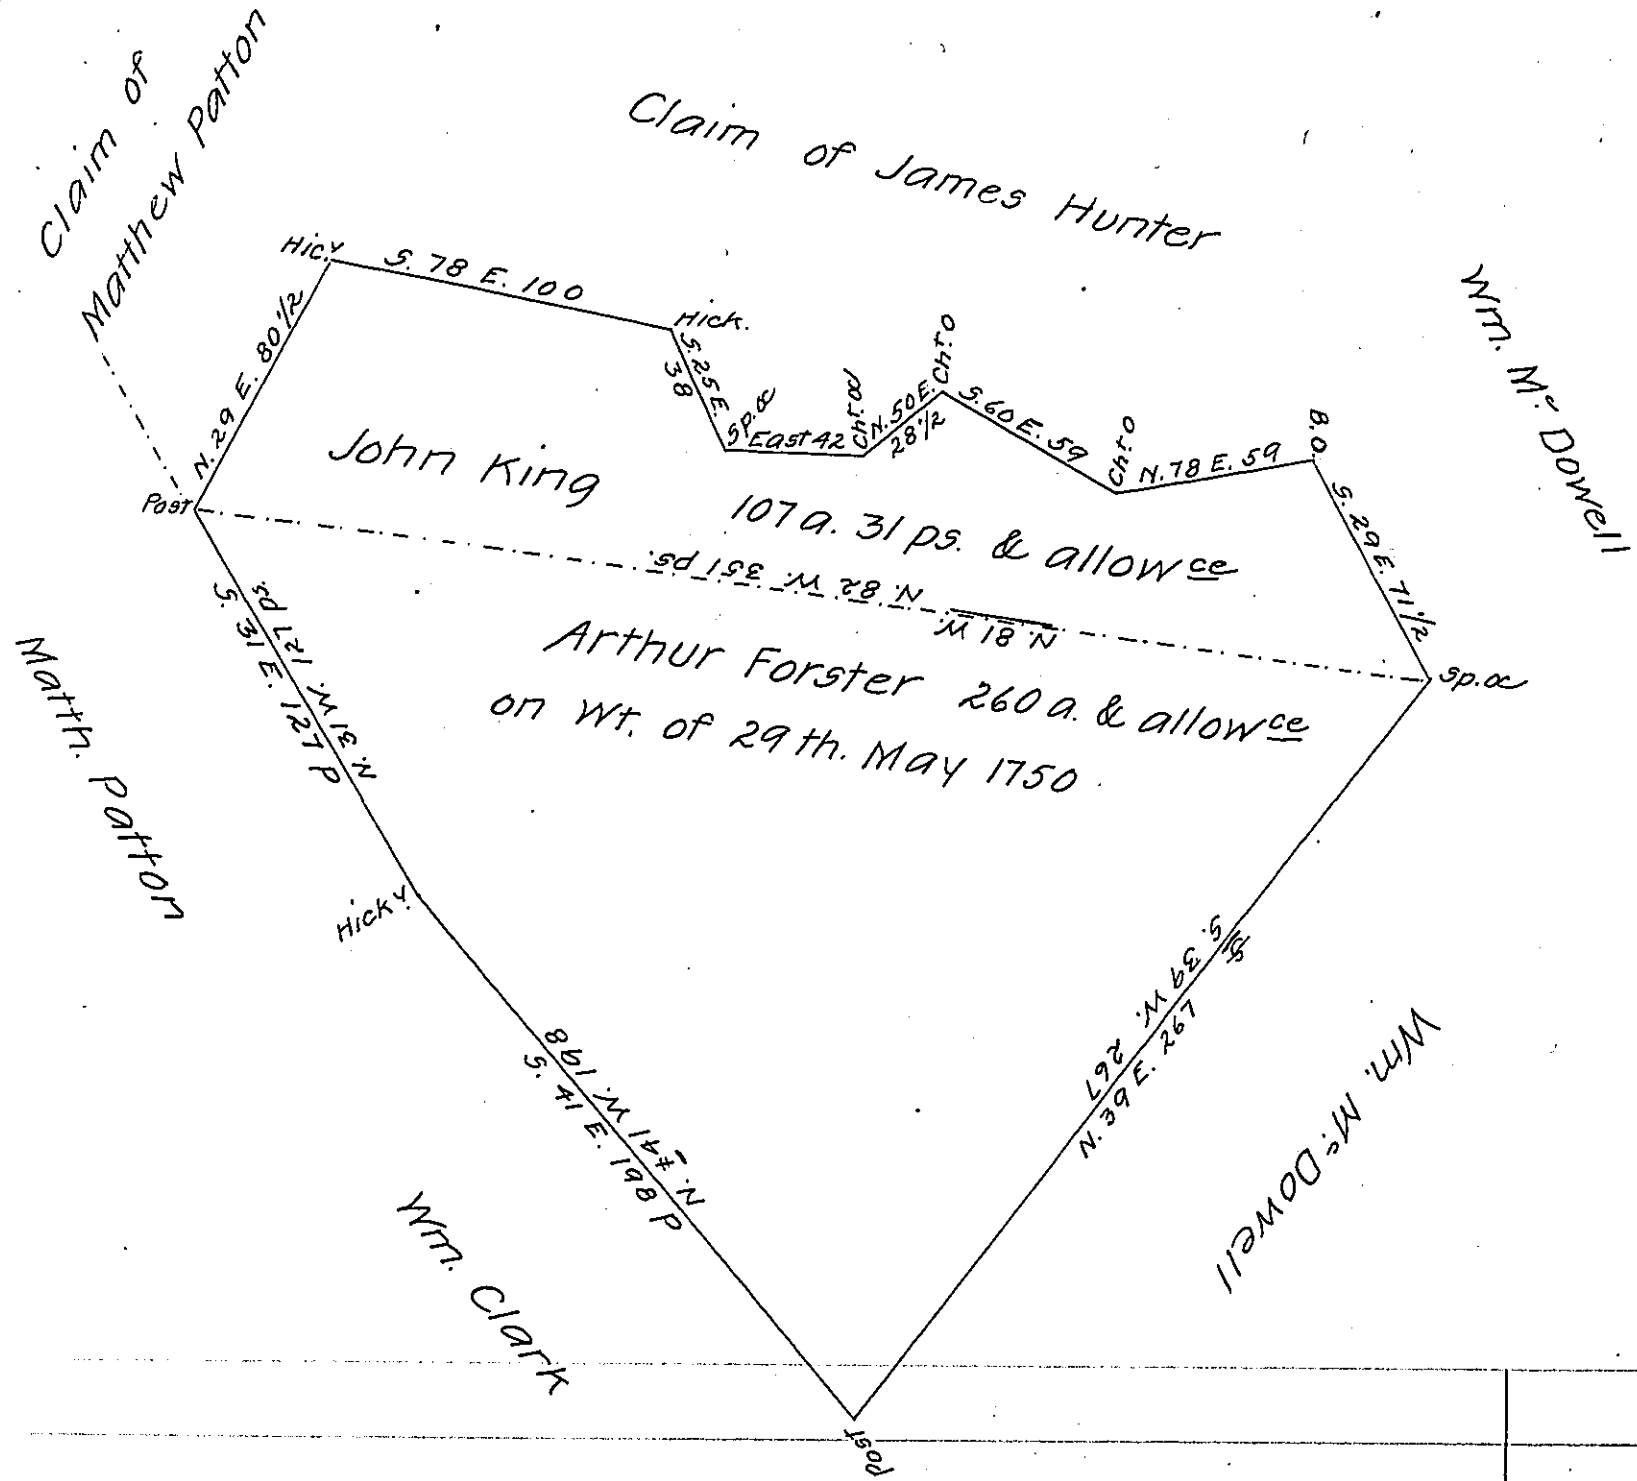 Claim of
Matthew Patton
Claim of James Hunter
Wm. Mc Dowell
Hic.y
S. 78 E. 100
Hick.
S. 25 E.
38
Sp. oc
East 42
Cht. oc
N. 50 E.
28 1/2
Cht. o
S. 60 E. 59
Cht. o
N. 78 E. 59
B.O.
S. 29 E. 71 1/2
Sp. oc
N. 29 E. 80 1/2
Post
John King
107 a. 31 ps. & allowce
N. 82 W. 351 ps.
N. 81 W.
Arthur Forster 260 a. & allowce
on Wt. of 29th. May 1750
N. 31 W. 127 ps.
S. 31 E. 127 P
Matth. Patton
Hicky.
N. 41 W. 198
S. 41 E. 198 P
Wm. Clark
S. 39 W. 267
N. 39 E. 267
Wm. Mc Dowell
Post